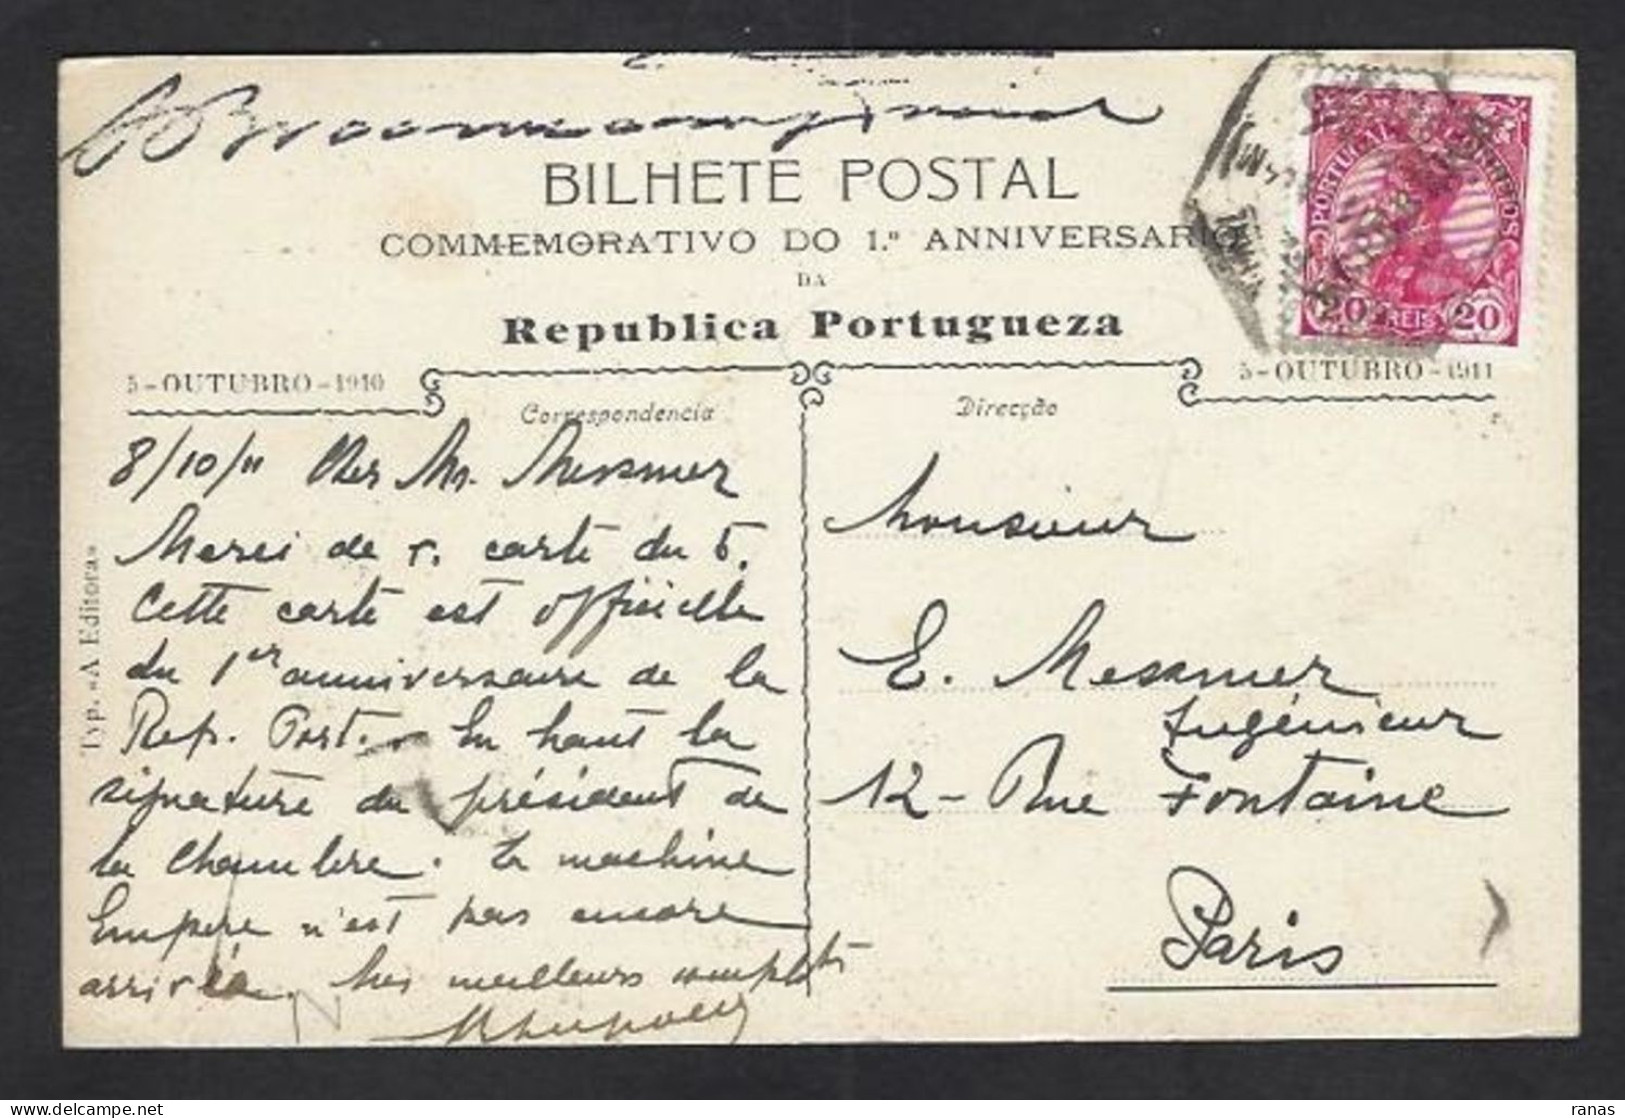 BILHETE POSTAL
COMMEMORATIVO DO 1.º ANNIVERSARIO
DA
Republica Portugueza
5-OUTUBRO-1910
5-OUTUBRO-1911
Correspondencia
Direcção
PORTUGAL CORREIOS
20 REIS 20
Typ. «A Editora»
8/10/11 Cher Mr. Messmer
Merci de v. carte du 5.
Cette carte est officielle
du 1er anniversaire de la
Rep. Port. - En haut la
signature du président de
la Chambre. La machine
Empire n'est pas encore
arrivée. Mes meilleurs compl[ts]
Monsieur
E. Messmer
Ingénieur
12 - Rue Fontaine
Paris
ranas